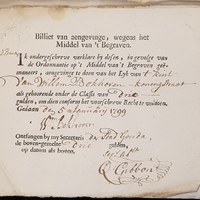 Billiet van aengevinge, wegens het
Middel van 't Begraven.
Ik ondergeschreve verklare by desen, in gevolge van
de Ordonnantie op 't Middel van 't Begraven geë-
maneert, aengevinge te doen van het Lyk van 't kint
Van Willem Bokhoven
als gehoorende onder de Classis van drie
gulden, om dien conform het voorschreve Recht te voldoen.
Gedaen den 5 January 1799
W Bokhoven
Ontfangen by my Secretaris der Stad Gouda,
de boven-gemelde drie gulden,
op datum als boven.